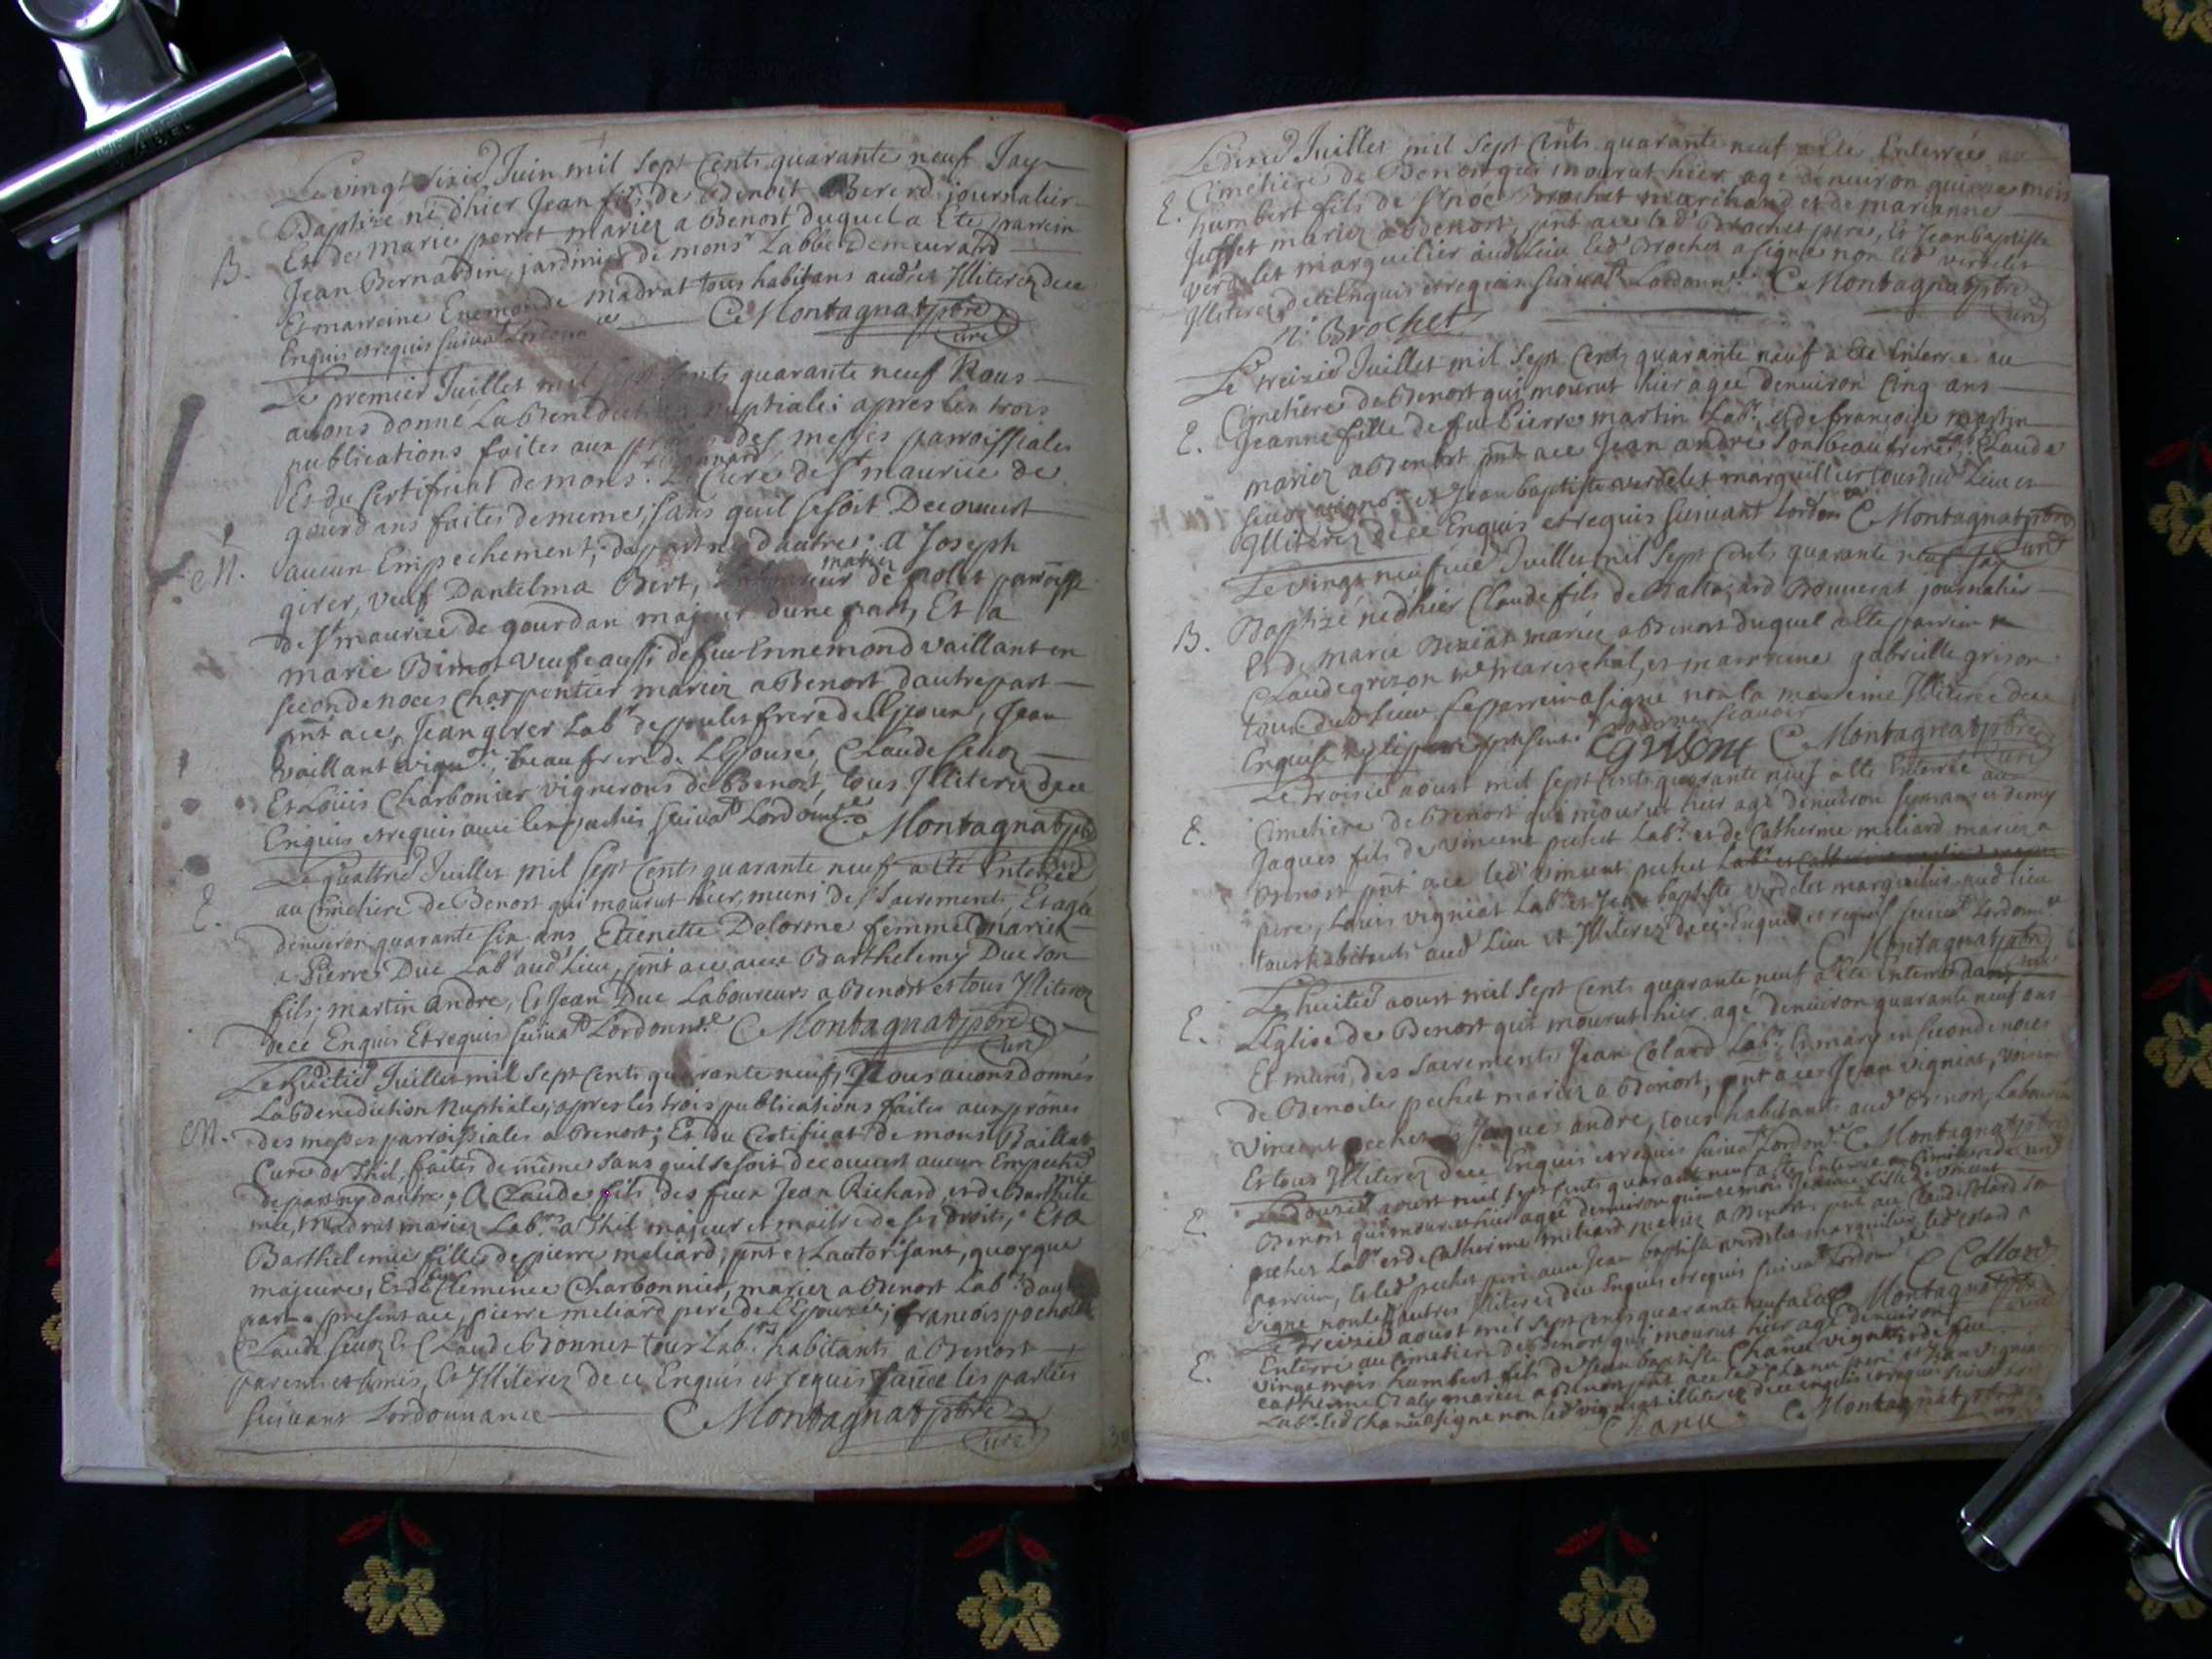 Le vingt sixie Juin mil sept cents quarante neuf Jay
Baptize né dhier Jean fils de Benoit Bererd journalier
B. Et de marie perret mariez a Benost duquel a Ete parrein
Jean Bernardin jardinier de monsr Labbe Demeurard
Et marreine Enemonde madrat tous habitans aud et Illiterez de ce
Enquis et requis suivat Lordonnce C. Montagnat pbre
curé
Le premier Juillet mil sept cents quarante neuf Nous
avons donné La Benediction nuptiale; apres les trois
publications faites aux prones des messes parroissiales
Et du Certificat de mons. Le Curé de St maurice de
gourdans faites de meme, sans quil se soit Decouvert
M. aucun Empechement, de part ny dautre; a Joseph
girer, veuf Dantelma Bert, de polet parroisse
de St maurice de gourdan majeur dune part, Et a
marie Bimet veufe aussi de feu Ennemond vaillant en
seconde noces Charpentier mariez a Benost dautre part
pnt ace, Jean girer Labr de poulet frere de LEpoux, Jean
vaillant vignn, beaufrere de LEpouse, Claude Sevoz
Et Loüis Charbonier vignerons de Benost, tous Illiterez de ce
Enquis et requis avec les parties suivat Lordonnce C. Montagnat pbre
curé
Le quattrie Juillet mil sept cents quarante neuf a Ete Enterrée
E. au Cimetiere de Benost qui mourut hier, muni des sacrements, Et agée
denviron quarante six ans Etienette Delorme femme mariez
a Pierre Duc Labr aud Lieu, pnt ace avec Barthelemy Duc son
fils; martin andre, Et Jean Duc Laboureurs a Benost et tous Illiterez
de ce Enquis Et requis suivat Lordonnce C. Montagnat pbre
curé
Le huitie Juillet mil sept cents quarante neuf, Nous avons donnés
La Benediction Nuptiale, apres les trois publications faites aux prônes
M. des messes parroissiales a Benost; Et du Certificat de monsr Baillat
Curé de Thil, faites de même sans quil se soit decouvert aucun Empeche
de part ny dautre; A Claude fils des feux Jean Richard et de Barthele
mie madrat mariez Labrs a Thil majeur et maitre de ses droits; Et a
Barthelemie fille de pierre meliard, pnt et Lautorisant, quoyque
majeure, Et de Clemence Charbonnier, mariez a Benost Labrs dautre
part present ace, pierre meliard pere de LEpouzée; francois pochon
Claude Sevoz Et Claude Bonnet tous Labrs habitants a Benost
parents et amis, Et Illiterez de ce Enquis et requis les parties
suivant Lordonnance C. Montagnat pbre
curé
Le dixie Juillet mil sept Cents quarante neuf a Ete Enterrée au
E. Cimetiere de Benost qui mourut hier agé denviron quinze mois
humbert fils de Sr noé Brochet marchand et de marianne
Juffet mariez a Benost, pnt ace led Brochet pere, Et Jean baptiste
verdelet marguilier aud Lieu Led Brochet a signé non led verdelet
Illiterez de ce Enquis et requis suivat Lordonnce C. Montagnat pbre
N. Brochet curé
Le treizie Juillet mil sept Cents quarante neuf a Ete Enterre au
Cimetiere de Benost qui mourut hier agée denviron Cinq ans
E. Jeanne fille de feu Pierre martin Labr et de francoise martin
mariez a Benost pnt ace Jean andre son beaufrere Claude
Sevoz vignn et Jean baptiste verdelet marguillier tous dud Lieu et
Illiterez de ce Enquis et requis suivant Lordonce C. Montagnat pbre
curé
Le vingt neufvie Juillet mil sept Cents quarante neuf Jay
Baptizé né dhier Claude fils de Baltazard Bouverat journalier
B. Et de marie Beniat mariez a Benost duquel a Ete parrein
Claude grizon me mareschal, et marreine gabrielle grison
tous dud Lieu Le parrein a signé non la marreine Illiterée de ce
Enquise C grison C. Montagnat pbre
curé
Le troisie aoust mil sept Cents quarante neuf a Ete Enterrée au
E. Cimetiere de Benost qui mourut hier agé denviron sept ans et demy
Jaques fils de vincent pechet Labr et de Catherine meliard mariez a
Benost pnt ace led vincent pechet
pere, Louis vigniat Labr et Jean baptiste verdelet marguilier aud lieu
tous habitants aud Lieu et Illiterez de ce Enquis et requis suivat Lordonnce
C. Montagnat pbre
curé
Le huitie aoust mil sept Cents quarante neuf a Ete Enterré dans
E. LEglise de Benost qui mourut hier agé denviron quarante neuf ans
Et muni des sacrements Jean Colard Labr Et mary en seconde noces
de Benoite pechet mariez a Benost, pnt ace Jean vigniat, voisin
vincent pechet Et Jaques andre, tous habitants aud Benost, Laboureurs
Et tous Illiterez de ce Enquis et requis suivat Lordonce C. Montagnat pbre
curé
Le douzie aoust mil sept Cents quarante neuf a Ete Enterree au Cimetiere de
E. Benost qui mourut hier agée denviron quinze mois Jeanne fille de vincent
pechet Labr et de Catherine meliard mariez a Benost, pnt ace Claude Colard son
parrein, Et led pechet pere avec Jean baptiste verdelet marguilier, led Colard a
signé non les autres Illiterez de ce Enquis et requis suivat Lordonce C Collard
C Montagnat pbre
curé
Le treizie aoust mil sept Cents quarante neuf a Ete
E. Enterré au Cimetiere de Benost qui mourut hier agé denviron
vingt mois humbert fils de Jean baptiste Chanu vignn et de feu
catherine Chaly mariez a Benost pnt ace led Chanu pere et Jean vigniat
Labr led Chanu a signe non led vigniat illiterez de ce enquis et requis suivat Lord
Chanu C. Montagnat pbre
curé